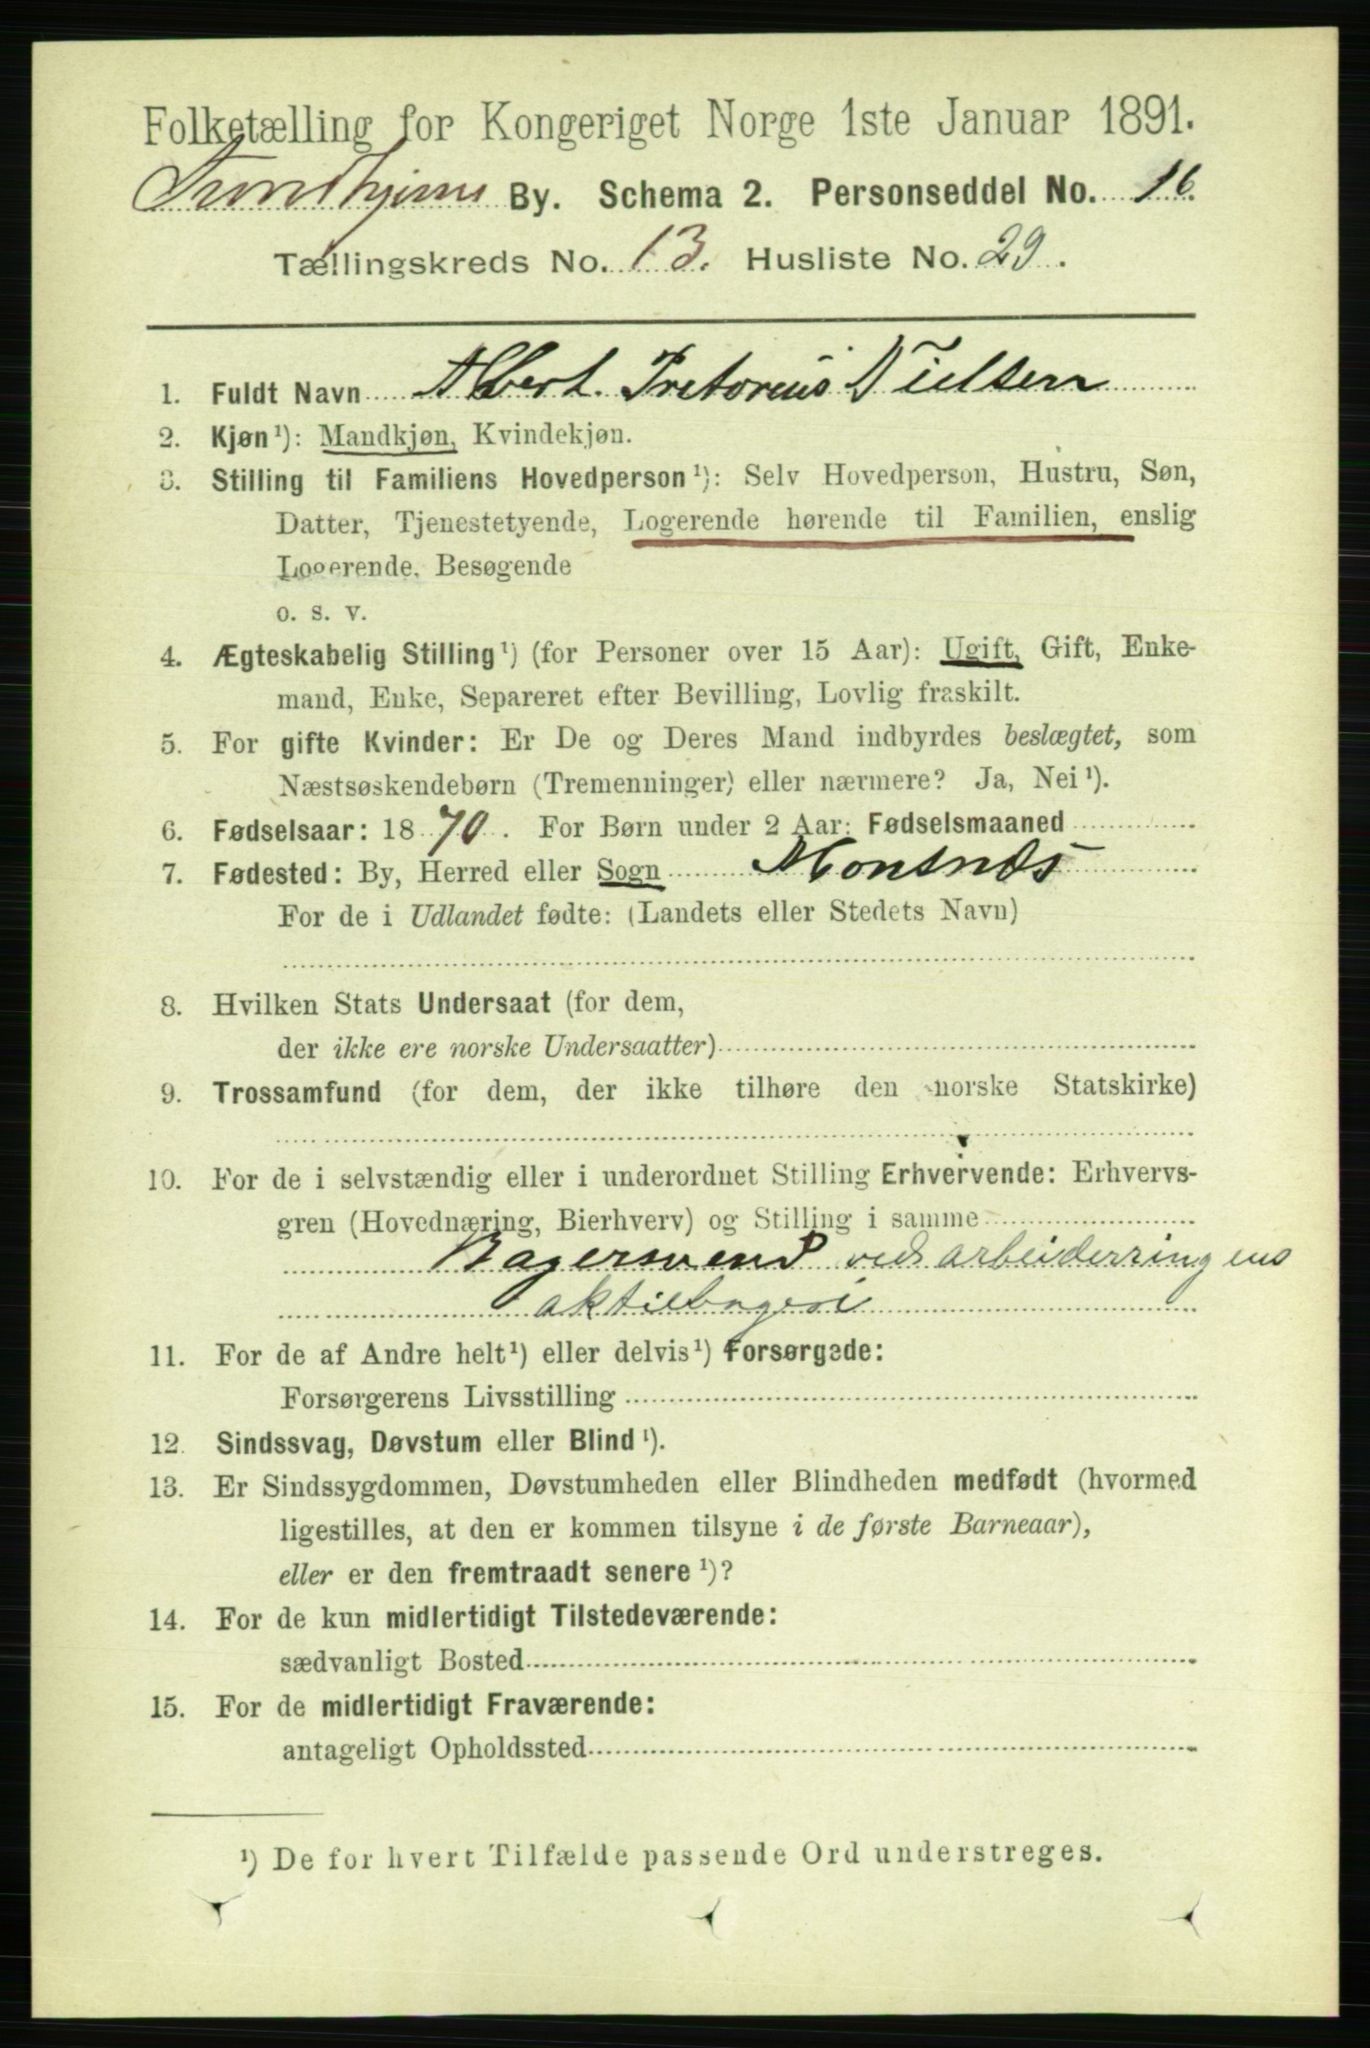 Folketælling for Kongeriget Norge 1ste Januar 1891.
Trondhjems By. Schema 2. Personseddel No. 16.
Tællingskreds No. 13. Husliste No. 29.
1. Fuldt Navn Albert Pretorius Nielsen
2. Kjøn¹): Mandkjøn, Kvindekjøn.
3. Stilling til Familiens Hovedperson¹): Selv Hovedperson, Hustru, Søn,
Datter, Tjenestetyende, Logerende hørende til Familien, enslig
Logerende, Besøgende
o. s. v.
4. Ægteskabelig Stilling¹) (for Personer over 15 Aar): Ugift, Gift, Enke-
mand, Enke, Separeret efter Bevilling, Lovlig fraskilt.
5. For gifte Kvinder: Er De og Deres Mand indbyrdes beslægtet, som
Næstsøskendebørn (Tremenninger) eller nærmere? Ja, Nei¹).
6. Fødselsaar: 1870. For Børn under 2 Aar: Fødselsmaaned
7. Fødested: By, Herred eller Sogn Monsnæs
For de i Udlandet fødte: (Landets eller Stedets Navn)
8. Hvilken Stats Undersaat (for dem,
der ikke ere norske Undersaatter)
9. Trossamfund (for dem, der ikke tilhøre den norske Statskirke)
10. For de i selvstændig eller i underordnet Stilling Erhvervende: Erhvervs-
gren (Hovednæring, Bierhverv) og Stilling i samme
Bagersvend ved arbeiderringens
aktiebageri
11. For de af Andre helt¹) eller delvis¹) Forsørgede:
Forsørgerens Livsstilling
12. Sindssvag, Døvstum eller Blind¹).
13. Er Sindssygdommen, Døvstumheden eller Blindheden medfødt (hvormed
ligestilles, at den er kommen tilsyne i de første Barneaar),
eller er den fremtraadt senere¹)?
14. For de kun midlertidigt Tilstedeværende:
sædvanligt Bosted
15. For de midlertidigt Fraværende:
antageligt Opholdssted
¹) De for hvert Tilfælde passende Ord understreges.